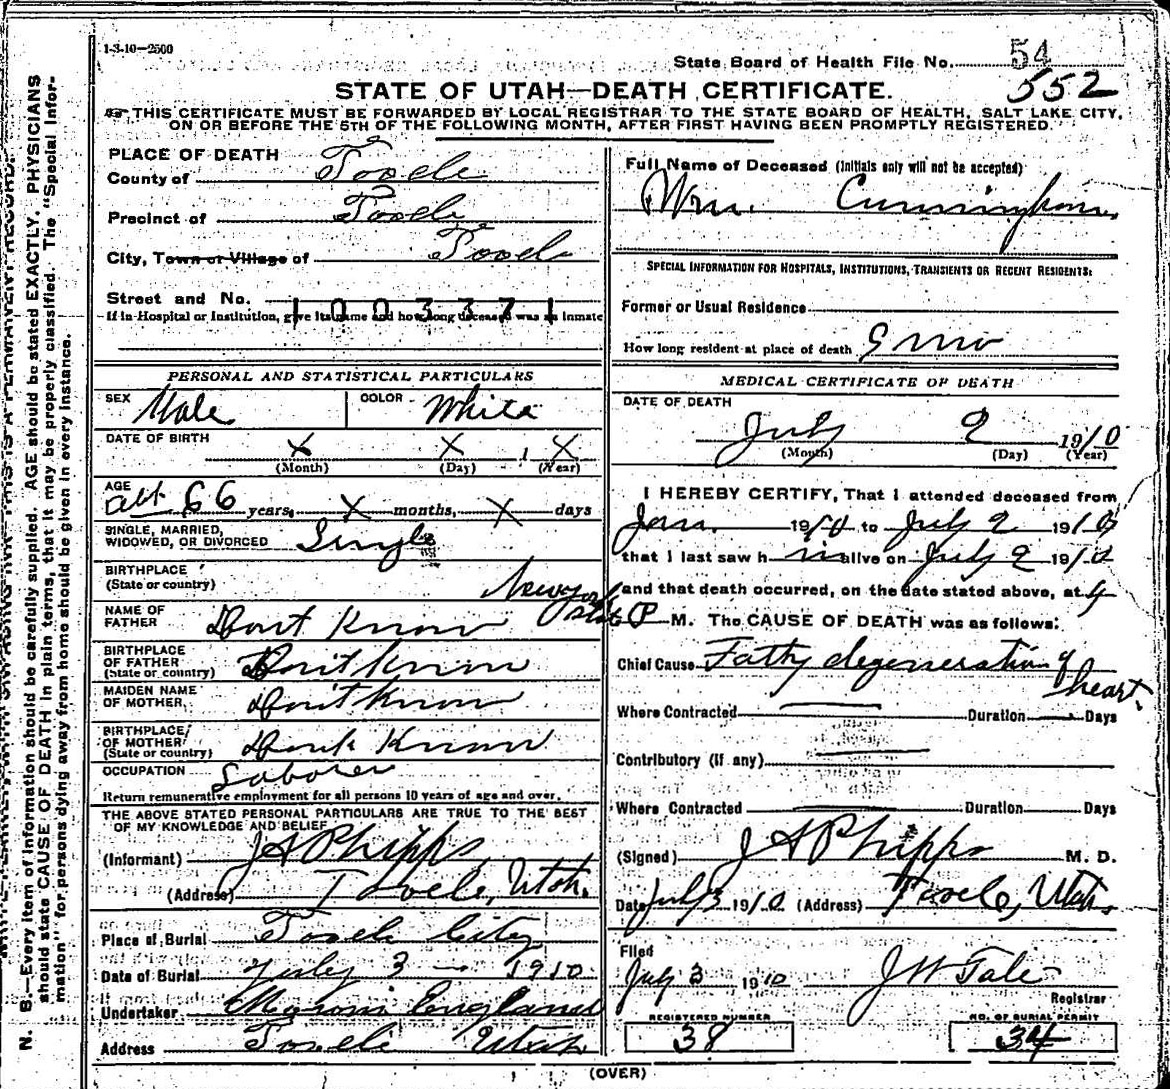 1-3-10-2500
State Board of Health File No. 54
552
STATE OF UTAH—DEATH CERTIFICATE.
THIS CERTIFICATE MUST BE FORWARDED BY LOCAL REGISTRAR TO THE STATE BOARD OF HEALTH, SALT LAKE CITY,
ON OR BEFORE THE 5TH OF THE FOLLOWING MONTH, AFTER FIRST HAVING BEEN PROMPTLY REGISTERED.
PLACE OF DEATH
County of Tooele
Precinct of Tooele
City, Town or Village of Tooele
Street and No.
1003371
If in Hospital or Institution, give its name and how long deceased was an inmate
PERSONAL AND STATISTICAL PARTICULARS
SEX Male COLOR White
DATE OF BIRTH X X , X
(Month) (Day) (Year)
AGE abt 66 years, X months, X days
SINGLE, MARRIED,
WIDOWED, OR DIVORCED Single
BIRTHPLACE
(State or country) New york
state
NAME OF
FATHER Dont Know
BIRTHPLACE
OF FATHER
(State or country) Dont Know
MAIDEN NAME
OF MOTHER Dont Know
BIRTHPLACE
OF MOTHER
(State or country) Dont Know
OCCUPATION Laborer
Return remunerative employment for all persons 10 years of age and over.
THE ABOVE STATED PERSONAL PARTICULARS ARE TRUE TO THE BEST
OF MY KNOWLEDGE AND BELIEF
(Informant) J A Phipps
(Address) Tooele, Utah.
Place of Burial Tooele City
Date of Burial July 3 — 1910
Undertaker Moroni England
Address Tooele Utah
Full Name of Deceased (Initials only will not be accepted)
Wm. Cunningham
SPECIAL INFORMATION FOR HOSPITALS, INSTITUTIONS, TRANSIENTS OR RECENT RESIDENTS:
Former or Usual Residence
How long resident at place of death 9 mo
MEDICAL CERTIFICATE OF DEATH
DATE OF DEATH
July 2 1910
(Month) (Day) (Year)
I HEREBY CERTIFY, That I attended deceased from
Jan. 1910 to July 2 1910
that I last saw h im alive on July 2 1910
and that death occurred, on the date stated above, at 4
P M. The CAUSE OF DEATH was as follows:
Chief Cause Fatty degeneration of
heart.
Where Contracted Duration Days
Contributory (If any)
Where Contracted Duration Days
(Signed) J A Phipps M. D.
Date July 3 1910 (Address) Tooele, Utah.
Filed
July 3 1910 J W Tate
Registrar
REGISTERED NUMBER
38
NO. OF BURIAL PERMIT
34
(OVER)
N. B.—Every item of information should be carefully supplied. AGE should be stated EXACTLY. PHYSICIANS
should state CAUSE OF DEATH in plain terms, that it may be properly classified. The "Special Infor-
mation" for persons dying away from home should be given in every instance.